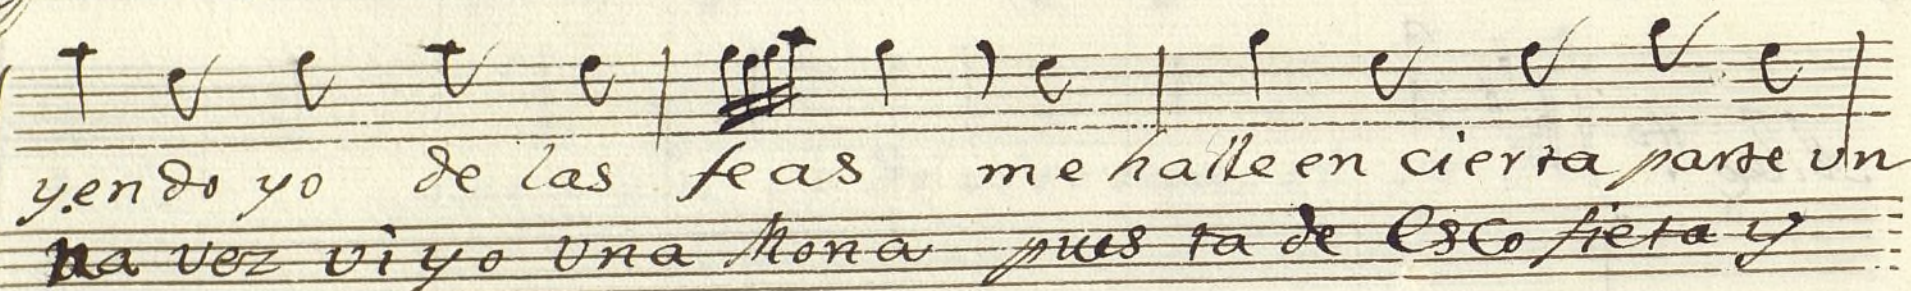 yendo yo de las feas me halle en cierta parte un
na vez vi yo una Mona pues ta de Escofieta y